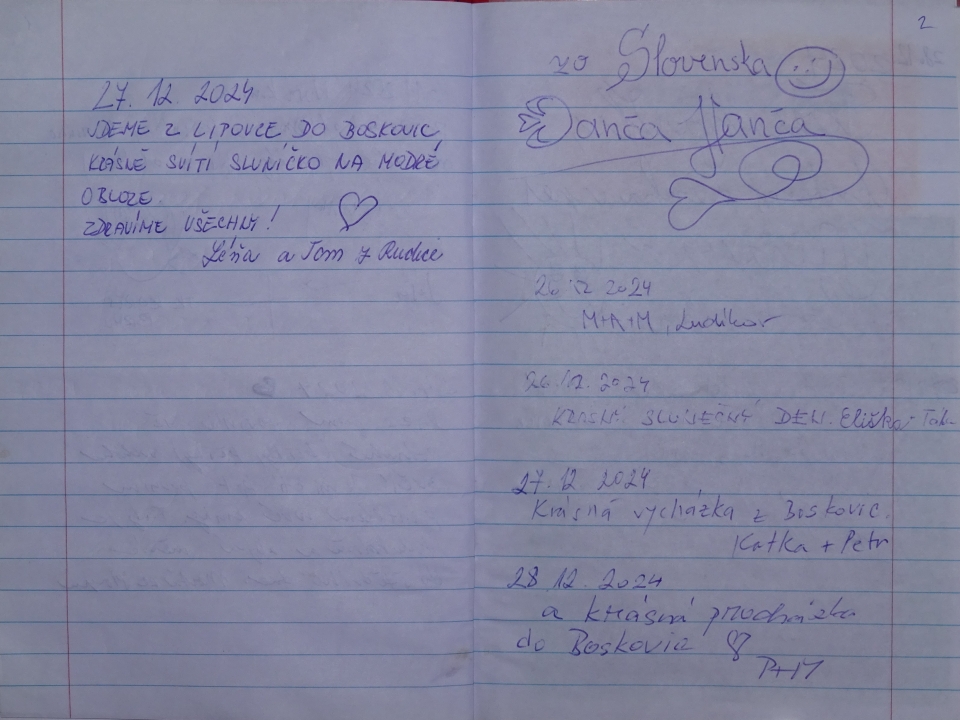 27. 12. 2024
JDEME Z LIPOVCE DO BOSKOVIC
KRÁSNĚ SVÍTÍ SLUNÍČKO NA MODRÉ
OBLOZE.
ZDRAVÍME VŠECHNY!
Léňa a Tom z Rudice
2
zo Slovenska
Danča Hanča
26 12 2024
M+A+M, Ludíkov
26.12.2024
KRÁSNÝ SLUNEČNÝ DEN. Eliška
27. 12 2024
Krásná vycházka z Boskovic.
Katka + Petr
28 12. 2024
a krásná procházka
do Boskovic
P+M